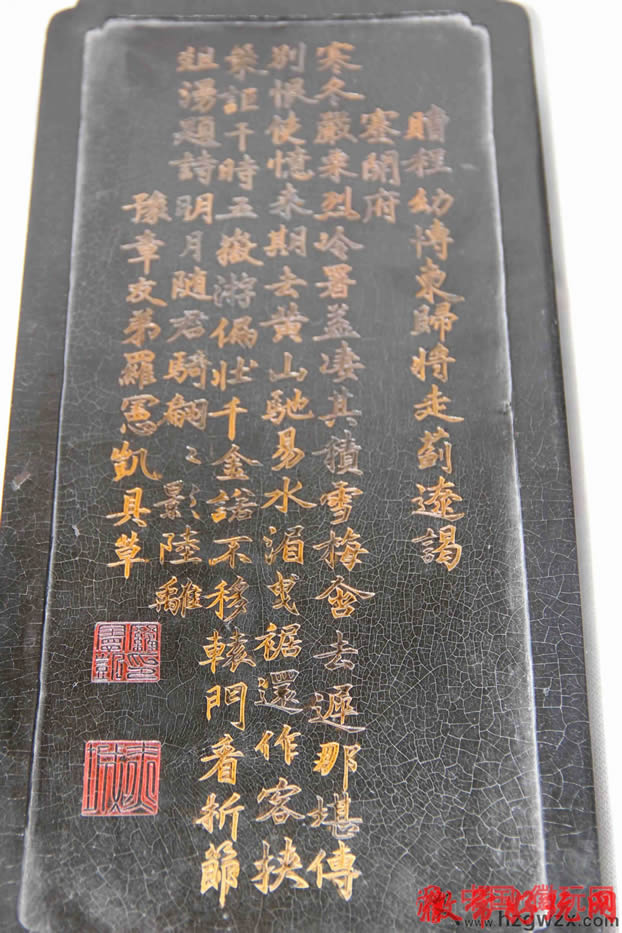 贈程幼博東歸將走薊遼謁
蹇開府
寒冬嚴栗烈冷署益淒其積雪梅含去遲那堪傳
別恨使憶來期去黃山馳易水湄曳裾還作客挾
策詎干時五嶽游偏壯千金諾不移轅門看折節
俎湯題詩明月隨君騎翩〻影陸離
豫章友弟羅憲凱具草
www.hzgwzx.com